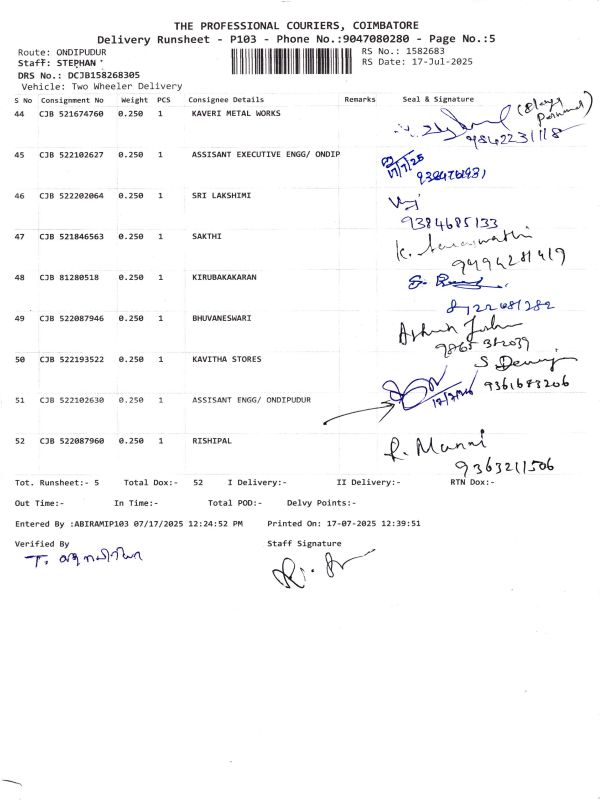 THE PROFESSIONAL COURIERS, COIMBATORE
Delivery Runsheet - P103 - Phone No.:9047080280 - Page No.:5
Route: ONDIPUDUR
RS No.: 1582683
Staff: STEPHAN
RS Date: 17-Jul-2025
DRS No.: DCJB158268305
Vehicle: Two Wheeler Delivery
S No Consignment No Weight PCS Consignee Details Remarks Seal & Signature
44 CJB 521674760 0.250 1 KAVERI METAL WORKS
9842231118
45 CJB 522102627 0.250 1 ASSISANT EXECUTIVE ENGG/ ONDIP
17/7/25
46 CJB 522202064 0.250 1 SRI LAKSHIMI
9384685133
47 CJB 521846563 0.250 1 SAKTHI
K. Saraswathi
9494281419
48 CJB 81280518 0.250 1 KIRUBAKAKARAN
49 CJB 522087946 0.250 1 BHUVANESWARI
50 CJB 522193522 0.250 1 KAVITHA STORES
9361673206
51 CJB 522102630 0.250 1 ASSISANT ENGG/ ONDIPUDUR
52 CJB 522087960 0.250 1 RISHIPAL
R. Manni
9363211506
Tot. Runsheet:- 5 Total Dox:- 52 I Delivery:- II Delivery:- RTN Dox:-
Out Time:- In Time:- Total POD:- Delvy Points:-
Entered By :ABIRAMIP103 07/17/2025 12:24:52 PM Printed On: 17-07-2025 12:39:51
Verified By Staff Signature